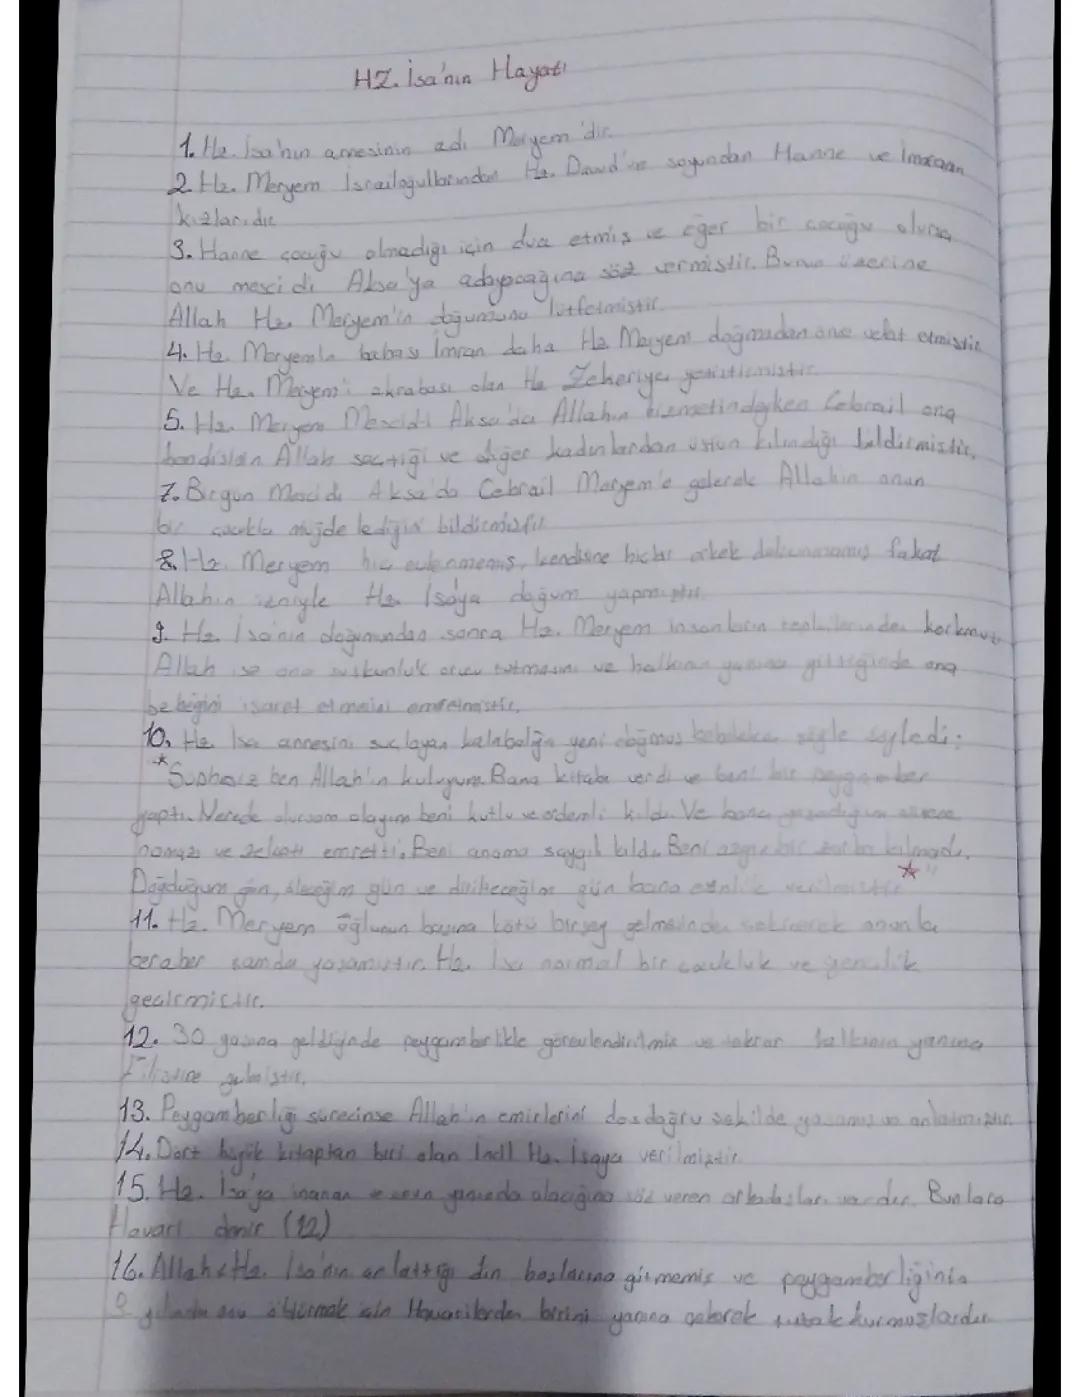 HZ. İsa'nın Hayatı
1. Hz. İsa'nın annesinin adı Meryem'dir.
2. Hz. Meryem İsrailoğullarından Hz. Davud'un soyundan Hanne ve İmranın
kızlarıdır
3. Hanne çocuğu olmadığı için dua etmiş ve eğer bir çocuğu olursa
onu mescidi Aksa'ya adayacağına söz vermiştir. Bunun üzerine
Allah Hz. Meryem'in doğumunu lütfetmiştir.
4. Hz. Meryemin babası İmran daha Hz. Meryem doğmadan önce vefat etmiştir
Ve Hz. Meryem'i akrabası olan Hz Zekeriya yetiştirmiştir.
5. Hz. Meryem Mescidi Aksa'da Allahın hizmetindeyken Cebrail ona
kendisinin Allah seçtiği ve diğer kadınlardan üstün kılındığı bildirmiştir.
7. Birgün Mescidi Aksa'da Cebrail Meryem'e gelerek Allahın onun
bir çocukla müjdelediğini bildirmiştir
8. Hz. Meryem hiç evlenmemiş, kendisine hiçbir erkek dokunmamış fakat
Allahın izniyle Hz. İsaya doğum yapmıştır.
9. Hz. İsa'nın doğumundan sonra Hz. Meryem insanların tepkilerinden korkmuş
Allah ise ona suskunluk orucu tutmasını ve halkının yanına gittiğinde ona
bebeğini işaret etmesini emretmiştir.
10. Hz. İsa annesini suçlayan kalabalığa yeni doğmuş bebekken şöyle söyledi:
* "Şüphesiz ben Allah'ın kuluyum. Bana kitabı verdi ve beni bir peygamber
yaptı. Nerede olursam olayım beni kutlu ve erdemli kıldı. Ve bana yaşadığım sürece
namazı ve zekatı emretti. Beni anama saygılı kıldı. Beni azgın bir zorba kılmadı.
Doğduğum gün, öleceğim gün ve dirileceğim gün bana esenlik verilmiştir * "
11. Hz. Meryem oğlunun başına kötü birşey gelmesinden onunla
beraber şamda yaşamıştır. Hz. İsa normal bir çocukluk ve gençlik
geçirmiştir.
12. 30 yaşına geldiğinde peygamberlikle görevlendirilmiş ve tekrar halkının yanına
Filistine gelmiştir.
13. Peygamberliği sürecinse Allah'ın emirlerini dosdoğru şekilde yaşamış ve anlatmıştır.
14. Dört büyük kitaptan biri olan İncil Hz. İsaya verilmiştir.
15. Hz. İsa'ya inanan ve onun yanında olacağına söz veren arkadaşları vardır. Bunlara
Havari denir (12)
16. Allah Hz. İsa'nın anlattığı din hoşlarına gitmemiş ve peygamberliğinin
3 yılında onu öldürmek için Havarilerden birini yanına çekerek tuzak kurmuşlardır